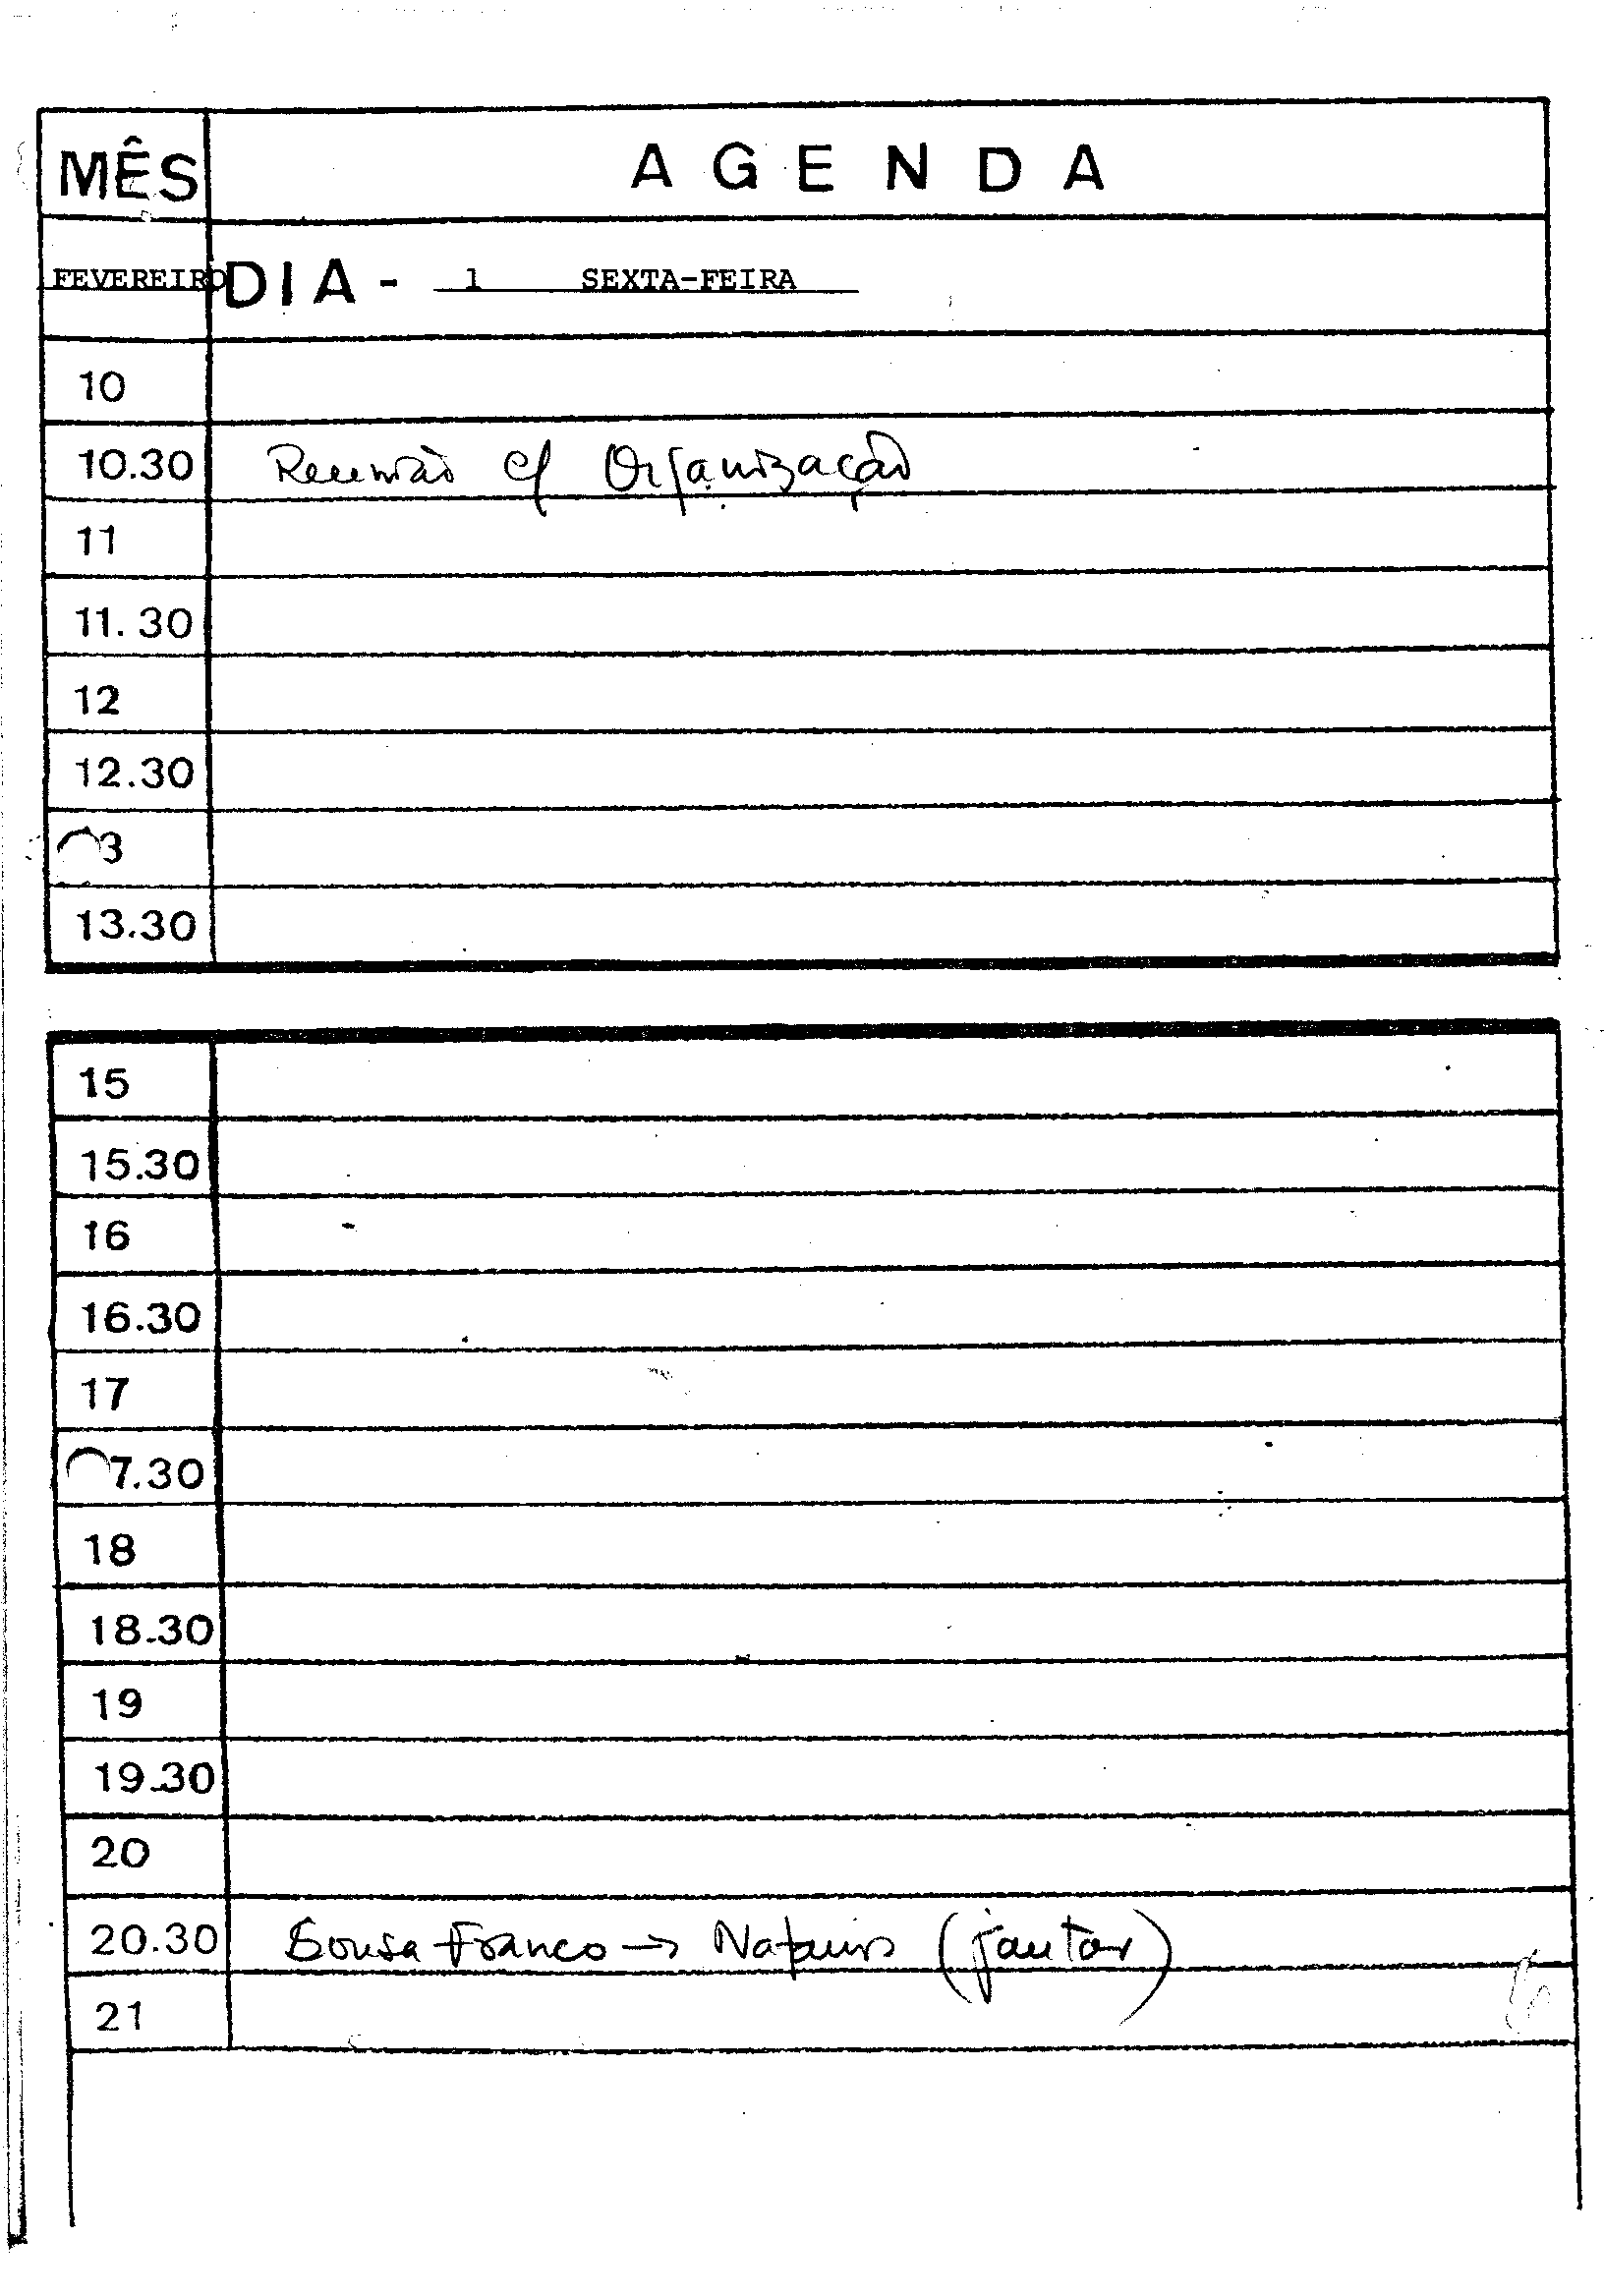 MÊS AGENDA
FEVEREIRO DIA - 1 SEXTA-FEIRA
10
10.30 Reunião c/ Organização
11
11.30
12
12.30
3
13.30
15
15.30
16
16.30
17
7.30
18
18.30
19
19.30
20
20.30 Sousa Franco → (jantar)
21